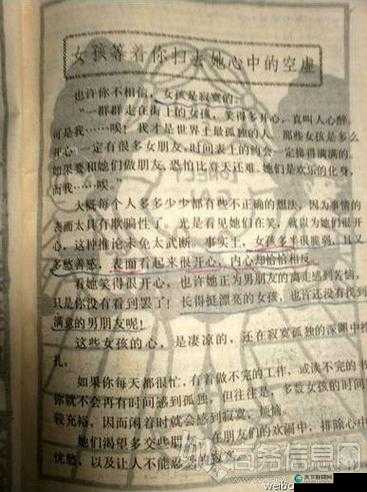 女孩等着你扫去她心中的空虚
也许你不相信，女孩是寂寞的。
“一群群走在街上的女孩，笑得多开心，真叫人心醉，
可是我……唉！我才是世界上最孤独的人。那些女孩是多么
开心，一定有很多女朋友，时间表上的约会一定排得满满的。
如果要和她们做朋友，恐怕比登天还难。她们是欢乐的化身，
而我……唉！”
大概每个人多多少少都有些不正确的想法，因为事情的
表面太具有欺骗性了。光是看见她们在笑，就以为她们很开
心，这种推论未免太武断。事实上，女孩多半很脆弱，且又
多愁善感，表面看起来很开心，内心却恰恰相反。
看她笑得很开心，也许她正为男朋友的离走感到苦恼，
只是你没有看到罢了！长得挺漂亮的女孩，也许还没有找到
满意的男朋友呢！
这些女孩的心，是凄凉的，还在寂寞孤独的深渊中挣
扎。
如果你每天都很忙，有着做不完的工作，或读不完的书
你就不会再有时间感到孤独，但往往是，多数女孩的时间
较充裕，因而闲着时就会感到寂寞、烦恼。
她们渴望多交些朋友，在朋友们的欢闹中，排除心中
忧愁，以及让人不能忍受的寂寞。
名务信息网